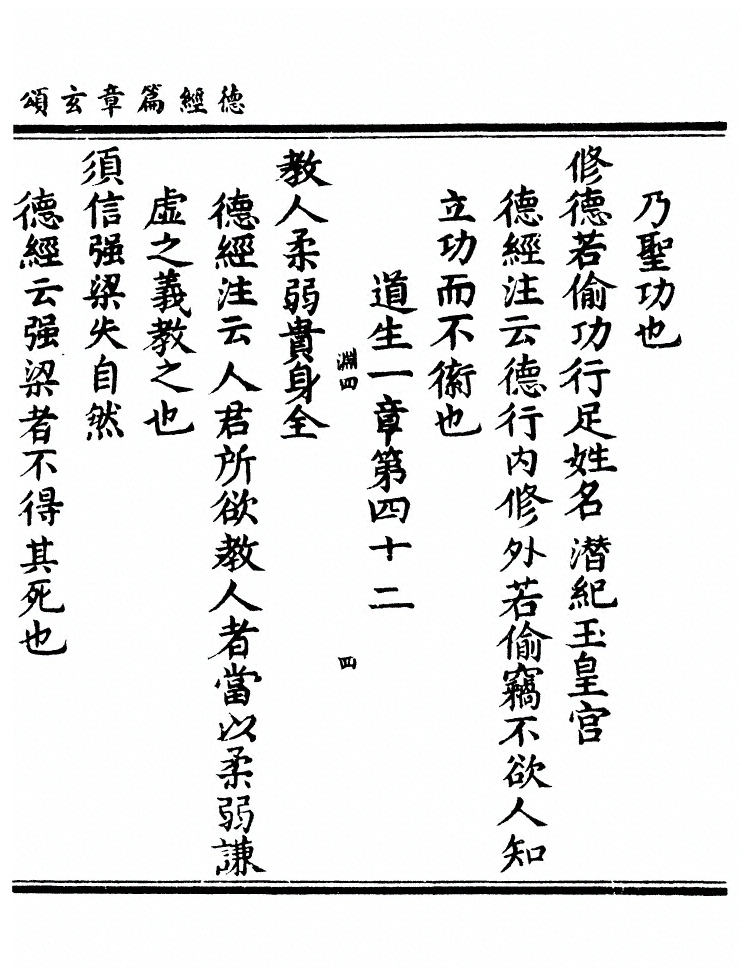 德經篇章玄頌
乃聖功也
修德若偷功行足姓名潛紀玉皇宫
德經注云德行内修外若偷竊不欲人知
立功而不衒也
道生一章第四十二
淵四
四
教人柔弱貴身全
德經注云人君所欲教人者當以柔弱謙
虛之義教之也
須信强梁失自然
德經云强梁者不得其死也